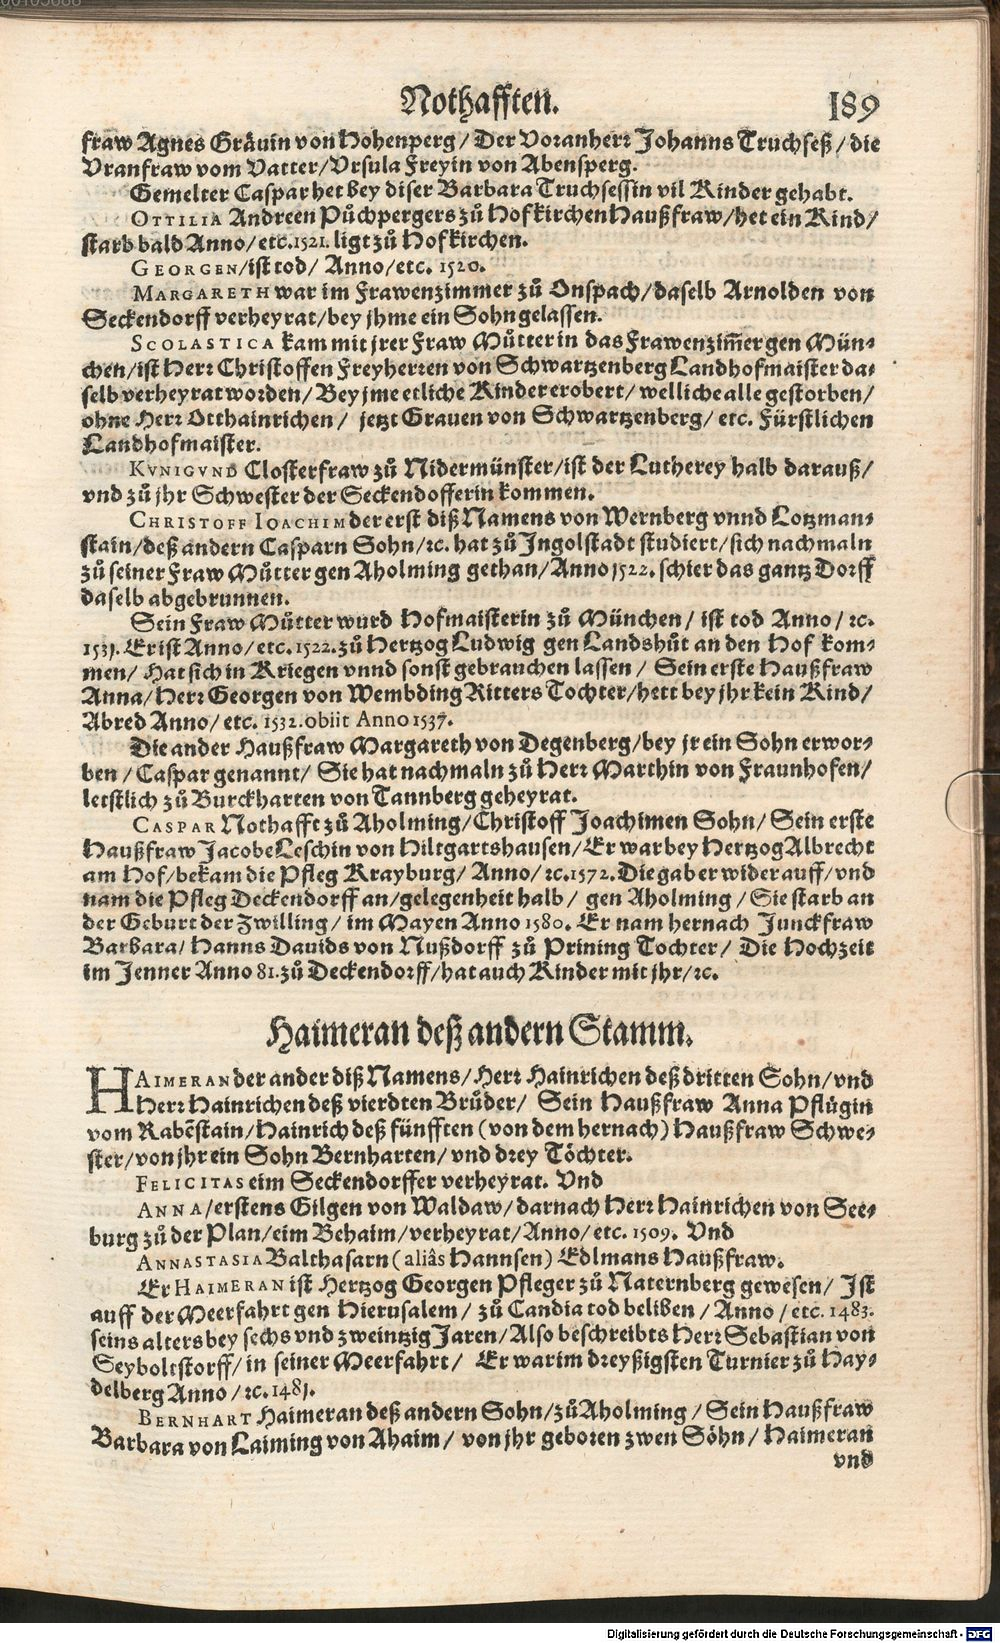 00105686
Nothafften. 189
fraw Agnes Grävin von Hohenperg / Der Voranherr Johanns Truchseß / die
Vranfraw vom Vatter / Vrsula Freyin von Abensperg.
Gemelter Caspar het bey diser Barbara Truchsessin vil Kinder gehabt.
OTTILIA Andreen Půchpergers zů Hofkirchen Haußfraw / het ein Kind /
starb bald Anno / etc. 1521. ligt zů Hofkirchen.
GEORGEN / ist tod / Anno / etc. 1520.
MARGARETH war im Frawenzimmer zů Onspach / daselb Arnolden von
Seckendorff verheyrat / bey jhme ein Sohn gelassen.
SCOLASTICA kam mit jrer Fraw Můtter in das Frawenzim̃er gen Mün-
chen / ist Herr Christoffen Freyherren von Schwartzenberg Landhofmaister da-
selb verheyrat worden / Bey jme etliche Kinder erobert / welliche alle gestorben /
ohne Herr Otthainrichen / jetzt Grauen von Schwartzenberg / etc. Fürstlichen
Landhofmaister.
KVNIGVND Closterfraw zů Nidermünster / ist der Lutherey halb darauß /
vnd zů jhr Schwester der Seckendofferin kommen.
CHRISTOFF IOACHIM der erst diß Namens von Wernberg vnnd Lotzman-
stain / deß andern Casparn Sohn / ꝛc. hat zů Ingolstadt studiert / sich nachmaln
zů seiner Fraw Můtter gen Aholming gethan / Anno 1522. schier das gantz Dorff
daselb abgebrunnen.
Sein Fraw Můtter wurd Hofmaisterin zů München / ist tod Anno / ꝛc.
1531. Er ist Anno / etc. 1522. zů Hertzog Ludwig gen Landshůt an den Hof kom-
men / Hat sich in Kriegen vnnd sonst gebrauchen lassen / Sein erste Haußfraw
Anna / Herr Georgen von Wembding Ritters Tochter / hett bey jhr kein Kind /
Abred Anno / etc. 1532. obiit Anno 1537.
Die ander Haußfraw Margareth von Degenberg / bey jr ein Sohn erwor-
ben / Caspar genannt / Sie hat nachmaln zů Herr Marthin von Fraunhofen /
letstlich zů Burckharten von Tannberg geheyrat.
CASPAR Nothafft zů Aholming / Christoff Joachimen Sohn / Sein erste
Haußfraw Jacobe Leschin von Hiltgartshausen / Er war bey Hertzog Albrecht
am Hof / bekam die Pfleg Krayburg / Anno / ꝛc. 1572. Die gab er wider auff / vnd
nam die Pfleg Deckendorff an / gelegenheit halb / gen Aholming / Sie starb an
der Geburt der Zwilling / im Mayen Anno 1580. Er nam hernach Junckfraw
Barbara / Hanns Dauids von Nußdorff zů Prining Tochter / Die Hochzeit
im Jenner Anno 81. zů Deckendorff / hat auch Kinder mit jhr / ꝛc.
Haimeran deß andern Stamm.
HAIMERAN der ander diß Namens / Herr Hainrichen deß dritten Sohn / vnd
Herr Hainrichen deß vierdten Brůder / Sein Haußfraw Anna Pflügin
vom Rabẽstain / Hainrich deß fünfften (von dem hernach) Haußfraw Schwe-
ster / von jhr ein Sohn Bernharten / vnd drey Töchter.
FELICITAS eim Seckendorffer verheyrat. Vnd
ANNA / erstens Gilgen von Waldaw / darnach Herr Hainrichen von See-
burg zů der Plan / eim Behaim / verheyrat / Anno / etc. 1509. Vnd
ANNASTASIA Balthasarn (aliâs Hannsen) Edlmans Haußfraw.
Er HAIMERAN ist Hertzog Georgen Pfleger zů Naternberg gewesen / Ist
auff der Meerfahrt gen Hierusalem / zů Candia tod beliben / Anno / etc. 1483.
seins alters bey sechs vnd zweintzig Jaren / Also beschreibts Herr Sebastian von
Seyboltstorff / in seiner Meerfahrt / Er war im dreyßigsten Turnier zů Hay-
delberg Anno / ꝛc. 1481.
BERNHART Haimeran deß andern Sohn / zů Aholming / Sein Haußfraw
Barbara von Laiming von Ahaim / von jhr geboren zwen Söhn / Haimeran
vnd
Digitalisierung gefördert durch die Deutsche Forschungsgemeinschaft - DFG